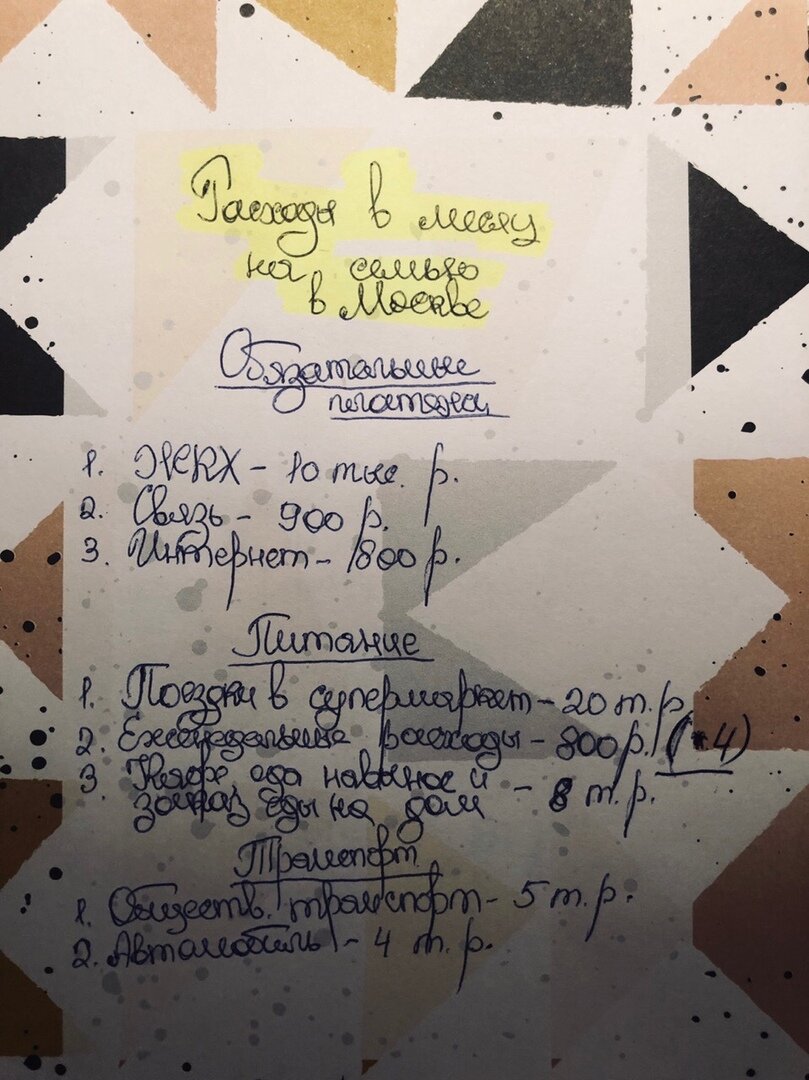 Расходы в месяц
на семью
в Москве
Обязательные
платежи
1. ЖКХ - 10 тыс. р.
2. Связь - 900 р.
3. Интернет - 800 р.
Питание
1. Поездки в супермаркет - 20 т.р.
2. Еженедельные расходы - 800 р. (*4)
3. Кафе еда навынос и
заказ еды на дом - 8 т.р.
Транспорт
1. Обществ. транспорт - 5 т.р.
2. Автомобиль - 4 т.р.